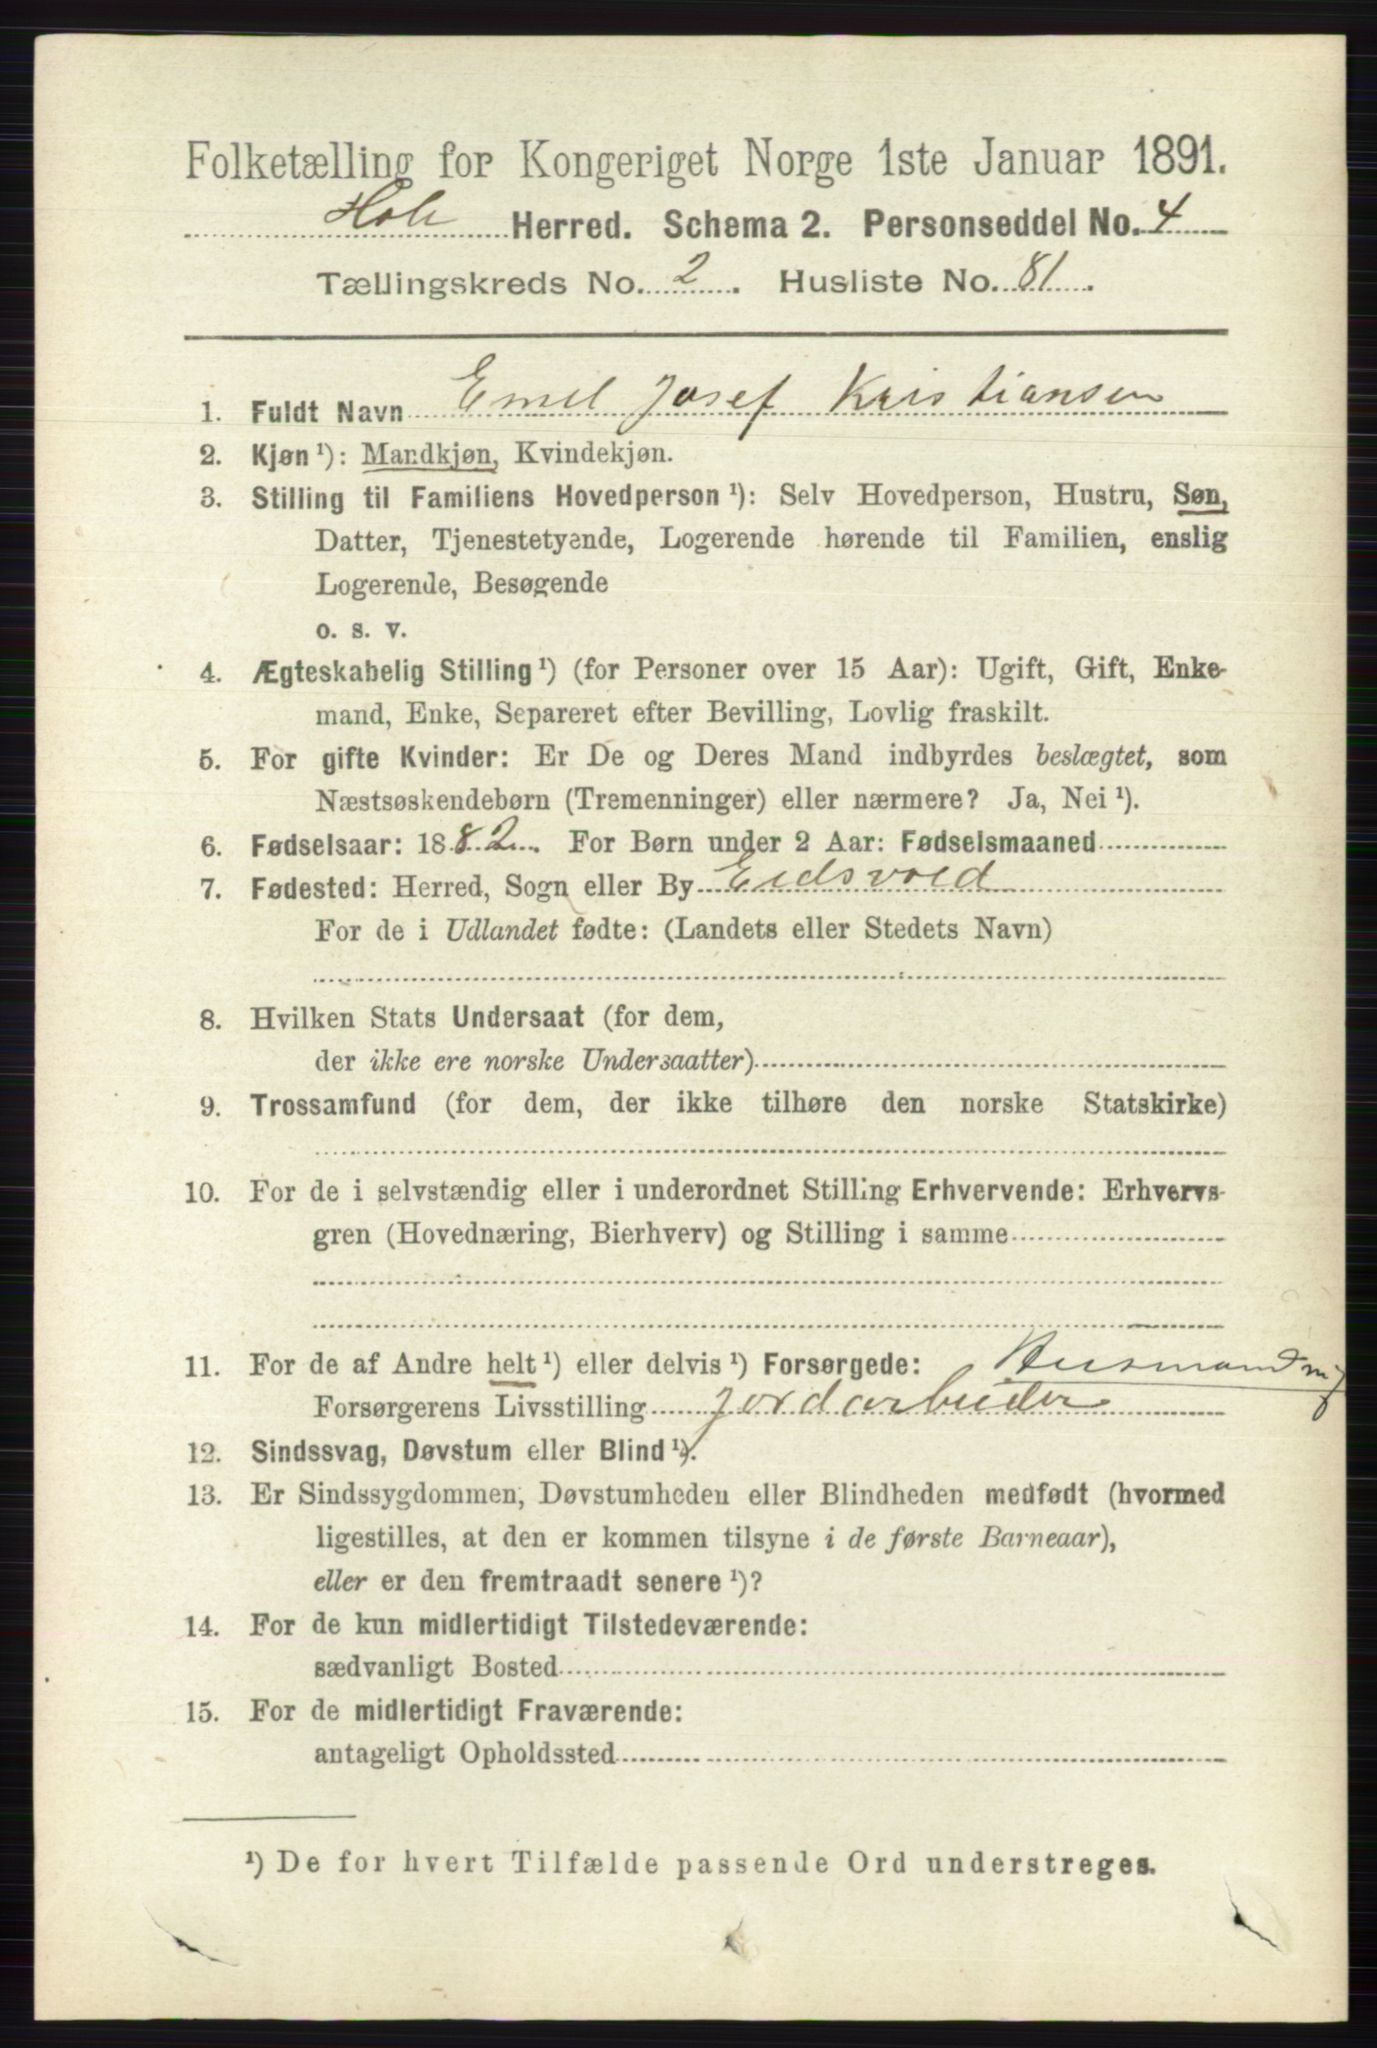 Folketælling for Kongeriget Norge 1ste Januar 1891.
Hole Herred. Schema 2. Personseddel No. 4
Tællingskreds No. 2. Husliste No. 81.
1. Fuldt Navn Emil Josef Kristiansen
2. Kjøn ¹): Mandkjøn, Kvindekjøn.
3. Stilling til Familiens Hovedperson ¹): Selv Hovedperson, Hustru, Søn,
Datter, Tjenestetyende, Logerende hørende til Familien, enslig
Logerende, Besøgende
o. s. v.
4. Ægteskabelig Stilling ¹) (for Personer over 15 Aar): Ugift, Gift, Enke-
mand, Enke, Separeret efter Bevilling, Lovlig fraskilt.
5. For gifte Kvinder: Er De og Deres Mand indbyrdes beslægtet, som
Næstsøskendebørn (Tremenninger) eller nærmere? Ja, Nei ¹).
6. Fødselsaar: 1882. For Børn under 2 Aar: Fødselsmaaned
7. Fødested: Herred, Sogn eller By Eidsvold
For de i Udlandet fødte: (Landets eller Stedets Navn)
8. Hvilken Stats Undersaat (for dem,
der ikke ere norske Undersaatter)
9. Trossamfund (for dem, der ikke tilhøre den norske Statskirke)
10. For de i selvstændig eller i underordnet Stilling Erhvervende: Erhvervs-
gren (Hovednæring, Bierhverv) og Stilling i samme
11. For de af Andre helt ¹) eller delvis ¹) Forsørgede: Husmand m j
Forsørgerens Livsstilling Jordarbeider
12. Sindssvag, Døvstum eller Blind ¹).
13. Er Sindssygdommen, Døvstumheden eller Blindheden medfødt (hvormed
ligestilles, at den er kommen tilsyne i de første Barneaar),
eller er den fremtraadt senere ¹)?
14. For de kun midlertidigt Tilstedeværende:
sædvanligt Bosted
15. For de midlertidigt Fraværende:
antageligt Opholdssted
¹) De for hvert Tilfælde passende Ord understreges.